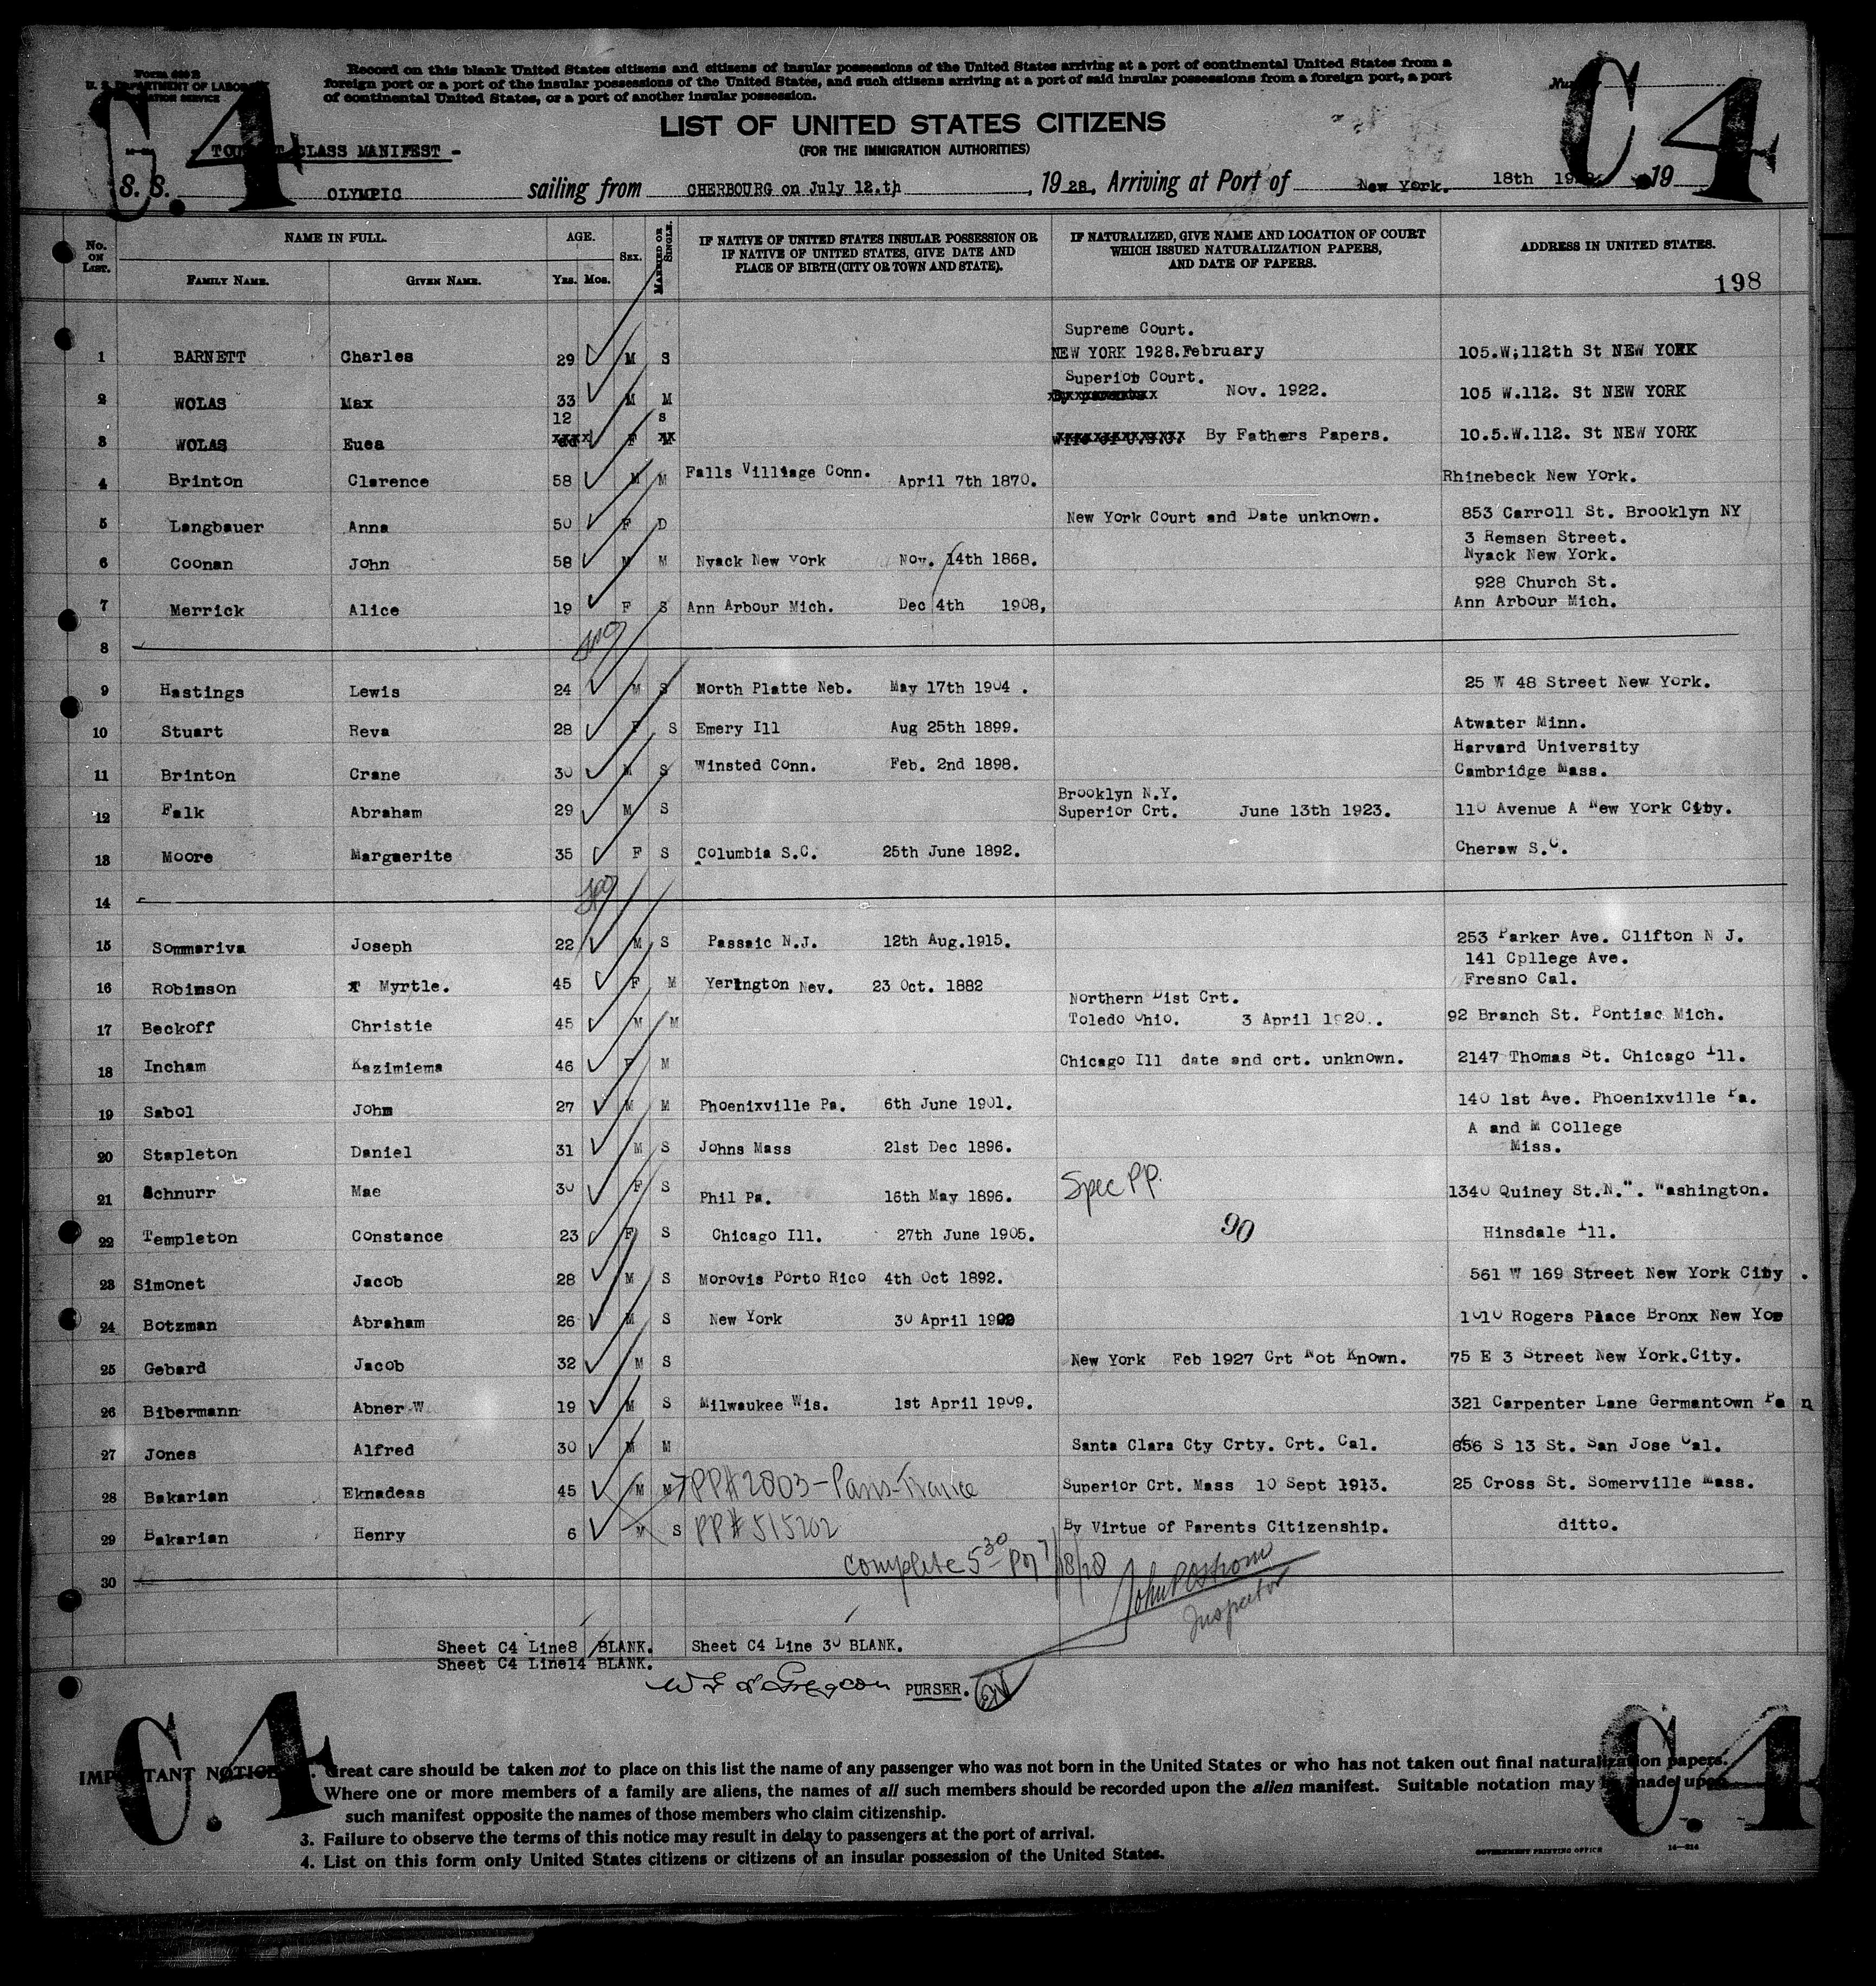 Form 630 B
U. S. DEPARTMENT OF LABOR
IMMIGRATION SERVICE
Record on this blank United States citizens and citizens of insular possessions of the United States arriving at a port of continental United States from a
foreign port or a port of the insular possessions of the United States, and such citizens arriving at a port of said insular possessions from a foreign port, a port
of continental United States, or a port of another insular possession.
C.4
C4
LIST OF UNITED STATES CITIZENS
(FOR THE IMMIGRATION AUTHORITIES)
- TOURIST CLASS MANIFEST -
S. S. OLYMPIC sailing from CHERBOURG on July 12.th , 19 28, Arriving at Port of New York. 18th 1928. 19
No. ON LIST.
NAME IN FULL.
FAMILY NAME. GIVEN NAME.
AGE.
YRS. MOS.
SEX.
MARRIED OR SINGLE.
IF NATIVE OF UNITED STATES INSULAR POSSESSION OR
IF NATIVE OF UNITED STATES, GIVE DATE AND
PLACE OF BIRTH (CITY OR TOWN AND STATE).
IF NATURALIZED, GIVE NAME AND LOCATION OF COURT
WHICH ISSUED NATURALIZATION PAPERS,
AND DATE OF PAPERS.
ADDRESS IN UNITED STATES.
198
Supreme Court.
1 BARNETT Charles 29 M S NEW YORK 1928.February 105.W;112th St NEW YORK
Superior Court.
2 WOLAS Max 33 M M Nov. 1922. 105 W.112. St NEW YORK
12 S
3 WOLAS Euea F By Fathers Papers. 10.5.W.112. St NEW YORK
4 Brinton Clarence 58 M M Falls Villiage Conn. April 7th 1870. Rhinebeck New York.
5 Langbauer Anna 50 F D New York Court and Date unknown. 853 Carroll St. Brooklyn NY
3 Remsen Street.
6 Coonan John 58 M M Nyack New York Nov. 14th 1868. Nyack New York.
928 Church St.
7 Merrick Alice 19 F S Ann Arbour Mich. Dec 4th 1908, Ann Arbour Mich.
8
9 Hastings Lewis 24 M S North Platte Neb. May 17th 1904 . 25 W 48 Street New York.
10 Stuart Reva 28 F S Emery Ill Aug 25th 1899. Atwater Minn.
Harvard University
11 Brinton Crane 30 M S Winsted Conn. Feb. 2nd 1898. Cambridge Mass.
Brooklyn N.Y.
12 Falk Abraham 29 M S Superior Crt. June 13th 1923. 110 Avenue A New York City.
13 Moore Marguerite 35 F S Columbia S.C. 25th June 1892. Cheraw S.C.
14
15 Sommariva Joseph 22 M S Passaic N.J. 12th Aug.1915. 253 Parker Ave. Clifton N J.
141 Cpllege Ave.
16 Robinson Myrtle. 45 F M Yerington Nev. 23 Oct. 1882 Fresno Cal.
Northern Dist Crt.
17 Beckoff Christie 45 M M Toledo Ohio. 3 April 1920.. 92 Branch St. Pontiac Mich.
18 Incham Kazimiema 46 F M Chicago Ill date and crt. unknown. 2147 Thomas St. Chicago Ill.
19 Sabol John 27 M M Phoenixville Pa. 6th June 1901. 140 1st Ave. Phoenixville Pa.
A and M College
20 Stapleton Daniel 31 M S Johns Mass 21st Dec 1896. Miss.
21 Schnurr Mae 30 F S Phil Pa. 16th May 1896. Spec PP. 1340 Quiney St.N.". Washington.
22 Templeton Constance 23 F S Chicago Ill. 27th June 1905. 90 Hinsdale Ill.
23 Simonet Jacob 28 M S Morovis Porto Rico 4th Oct 1892. 561 W 169 Street New York City .
24 Botzman Abraham 26 M S New York 30 April 1902 1010 Rogers Place Bronx New Yor
25 Gebard Jacob 32 M S New York Feb 1927 Crt Not Known. 75 E 3 Street New York.City.
26 Bibermann Abner W 19 M S Milwaukee Wis. 1st April 1909. 321 Carpenter Lane Germantown Pa n
27 Jones Alfred 30 M M Santa Clara Cty Crty. Crt. Cal. 656 S 13 St. San Jose Cal.
28 Bakarian Eknadeas 45 M M PP# 2803 - Paris-France Superior Crt. Mass 10 Sept 1913. 25 Cross St. Somerville Mass.
29 Bakarian Henry 6 M S PP# 515202 By Virtue of Parents Citizenship. ditto.
Complete 5 30 PM 7/18/28
30
Inspector
Sheet C4 Line8 BLANK. Sheet C4 Line 30 BLANK.
Sheet C4 Line14 BLANK.
PURSER.
C.4
C.4
IMPORTANT NOTICE. Great care should be taken not to place on this list the name of any passenger who was not born in the United States or who has not taken out final naturalization papers.
Where one or more members of a family are aliens, the names of all such members should be recorded upon the alien manifest. Suitable notation may be made upon
such manifest opposite the names of those members who claim citizenship.
3. Failure to observe the terms of this notice may result in delay to passengers at the port of arrival.
4. List on this form only United States citizens or citizens of an insular possession of the United States.
GOVERNMENT PRINTING OFFICE 14-214